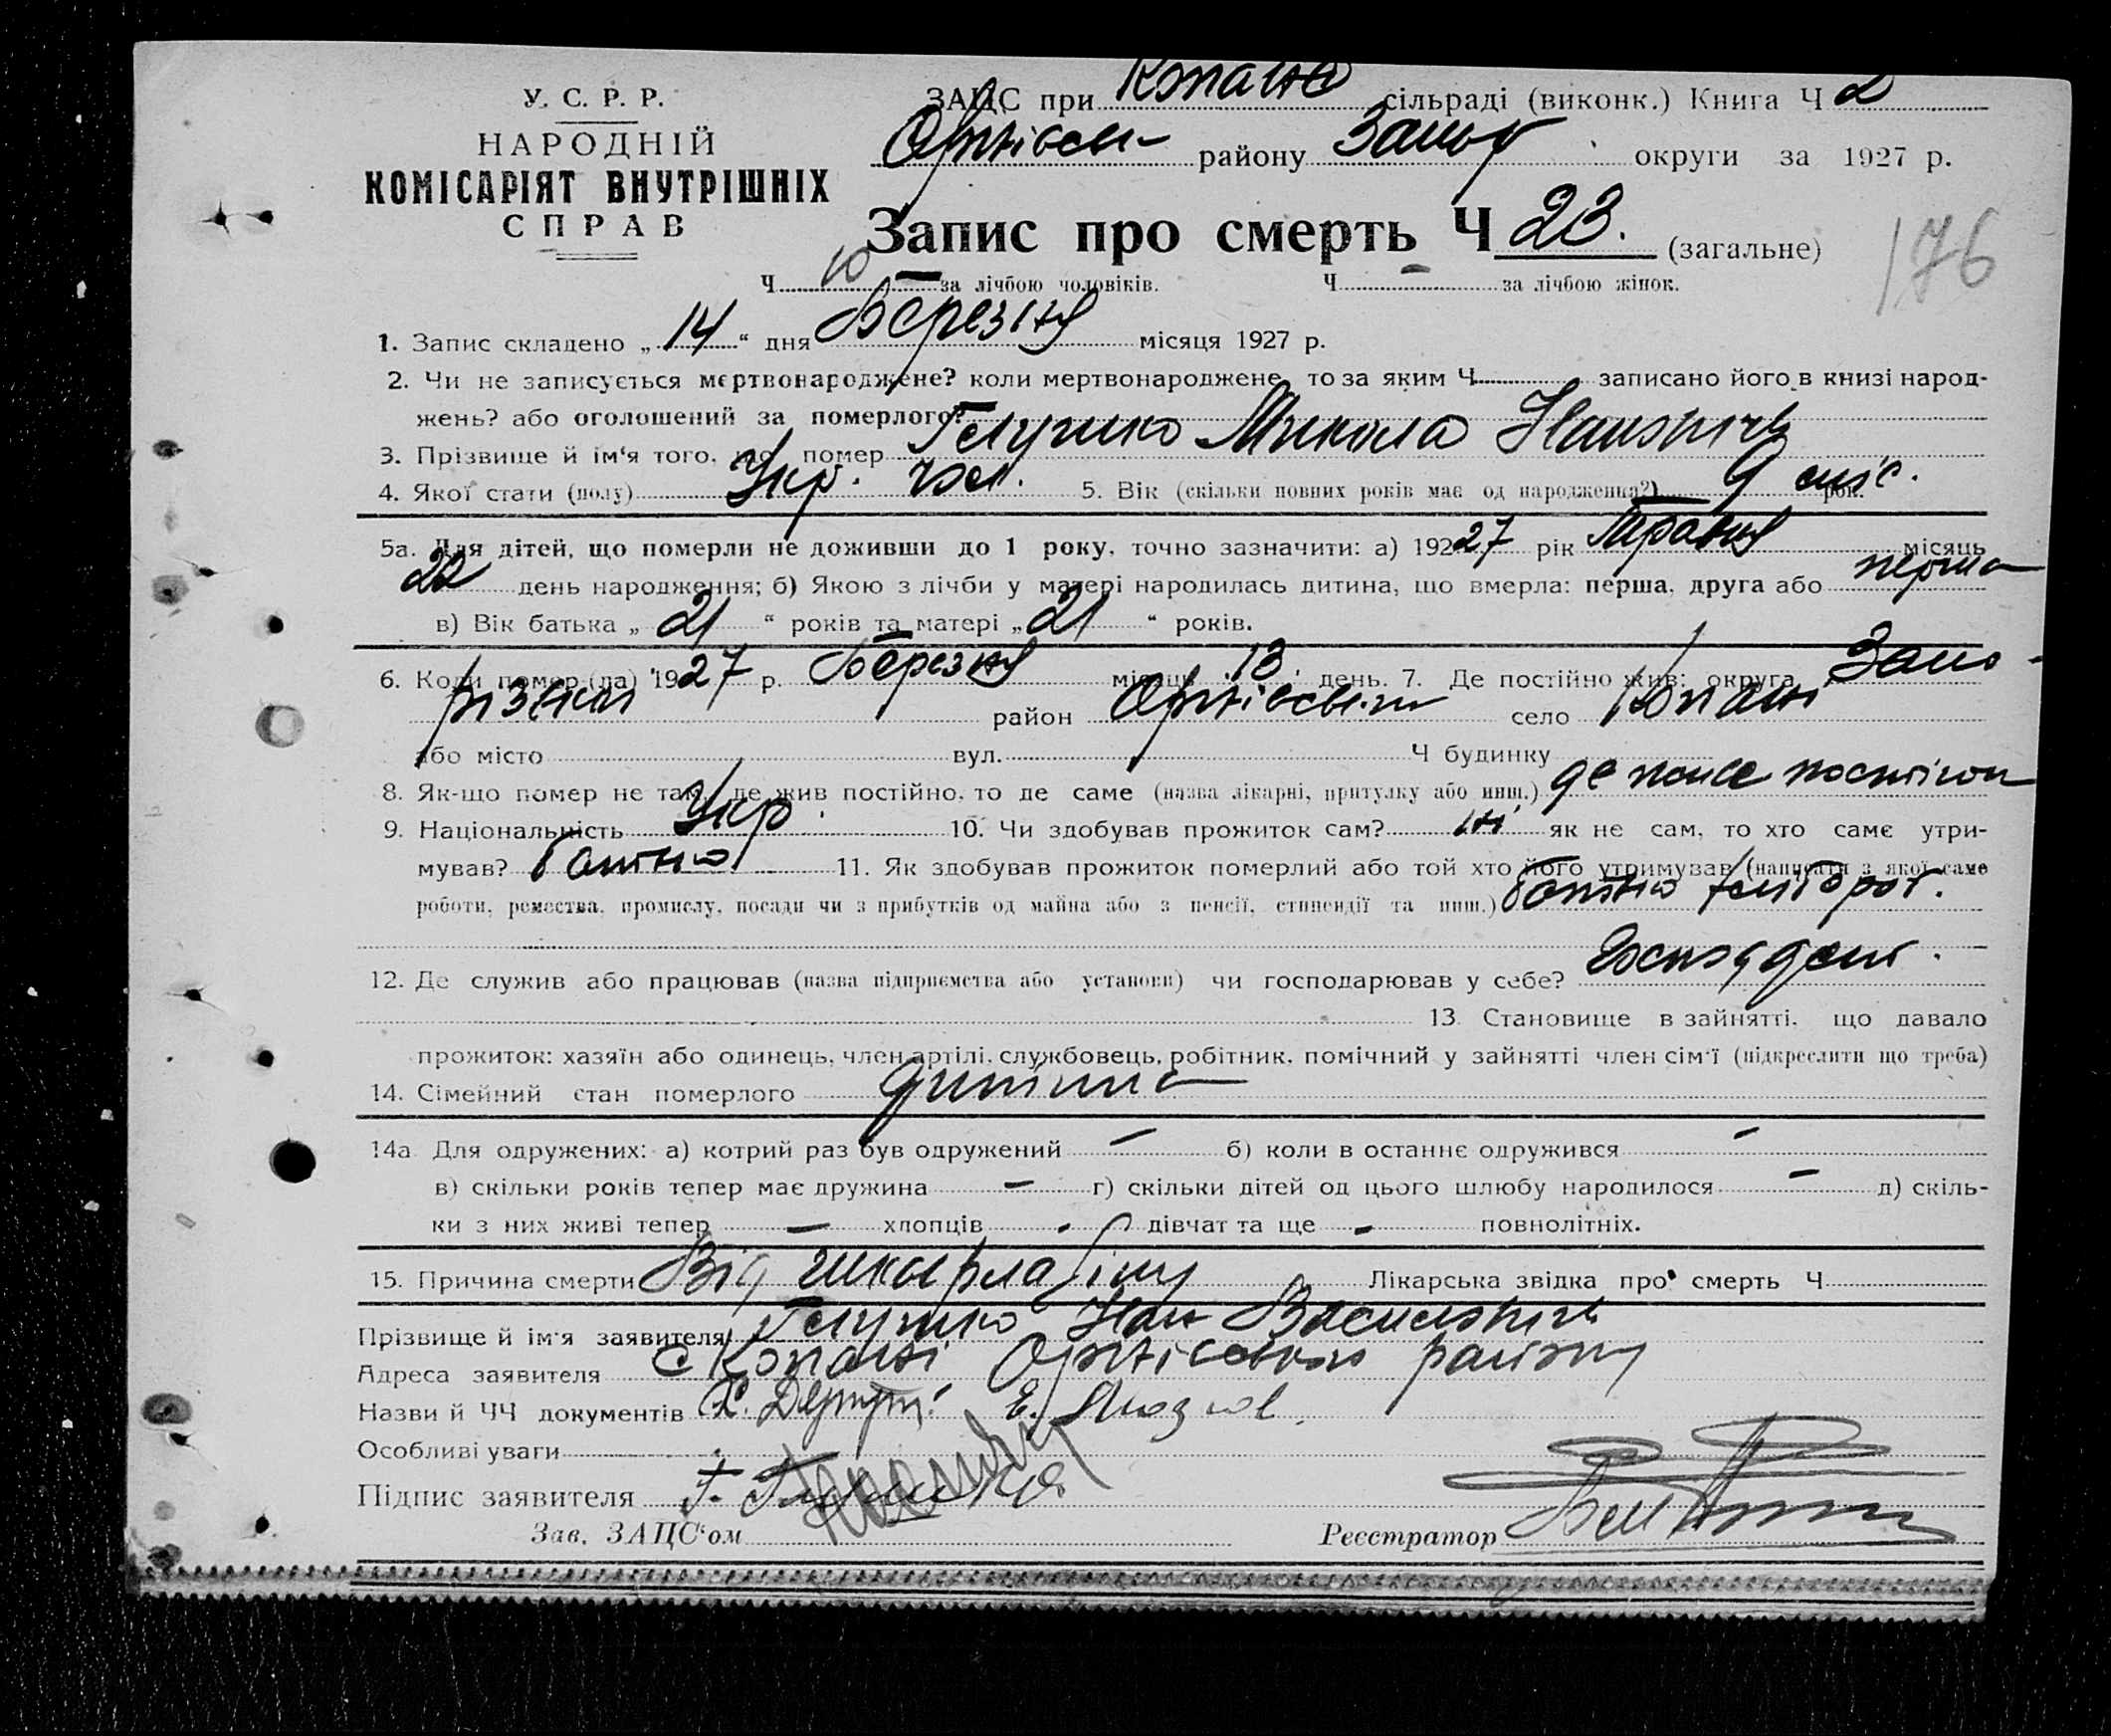 У. С. Р. Р.
НАРОДНІЙ
КОМІСАРІЯТ ВНУТРІШНІХ
СПРАВ
ЗАЦС при Копане сільраді (виконк.) Книга Ч 2
району Запор округи за 1927 р.
Запис про смерть Ч 23. (загальне)
176
Ч 10 за лічбою чоловіків. Ч - за лічбою жінок.
1. Запис складено „ 14 “ дня Березня місяця 1927 р.
2. Чи не записується мертвонароджене? коли мертвонароджене, то за яким Ч записано його в книзі народ-
жень? або оголошений за померлого? —
3. Прізвище й ім‘я того, що помер Глушко Микола Іванович
4. Якої стати (полу) Укр. чол. 5. Вік (скільки повних років має од народження?) 9 міс. рок.
5а. Для дітей, що померли не доживши до 1 року, точно зазначити: а) 192 27 рік Травня місяць
22 день народження; б) Якою з лічби у матері народилась дитина, що вмерла: перша, друга або перша
в) Вік батька „ 21 “ років та матері „ 21 “ років.
6. Коли помер (ла) 19 27 р. Березня місяць 13 день. 7. Де постійно жив: округа Запо-
різька район Оріхівськ. село Копані
або місто вул. Ч будинку
8. Як-що помер не там, де жив постійно, то де саме (назва лікарні, притулку або инш.) де жив постійно
9. Національність Укр. 10. Чи здобував прожиток сам? ні як не сам, то хто саме утри-
мував? Батько 11. Як здобував прожиток померлий або той хто його утримував (написати з якої саме
роботи, ремества, промислу, посади чи з прибутків од майна або з пенсії, стипендії та инш.) батько хлібороб.
12. Де служив або працював (назва підприємства або установи) чи господарював у себе?
13. Становище в зайнятті, що давало
прожиток: хазяїн або одинець, член артілі, службовець, робітник, помічний у зайнятті член сім‘ї (підкреслити що треба)
14. Сімейний стан померлого дитина
14а Для одружених: а) котрий раз був одружений — б) коли в останнє одружився —
в) скільки років тепер має дружина — г) скільки дітей од цього шлюбу народилося — д) скіль-
ки з них живі тепер — хлопців - дівчат та ще - повнолітніх.
15. Причина смерти Від Лікарська звідка про смерть Ч
Прізвище й ім‘я заявителя Глушко Іван Васильович
Адреса заявителя с Копані Оріхівського району
Назви й ЧЧ документів
Особливі уваги
Підпис заявителя
Зав. ЗАЦС‘ом Реєстратор